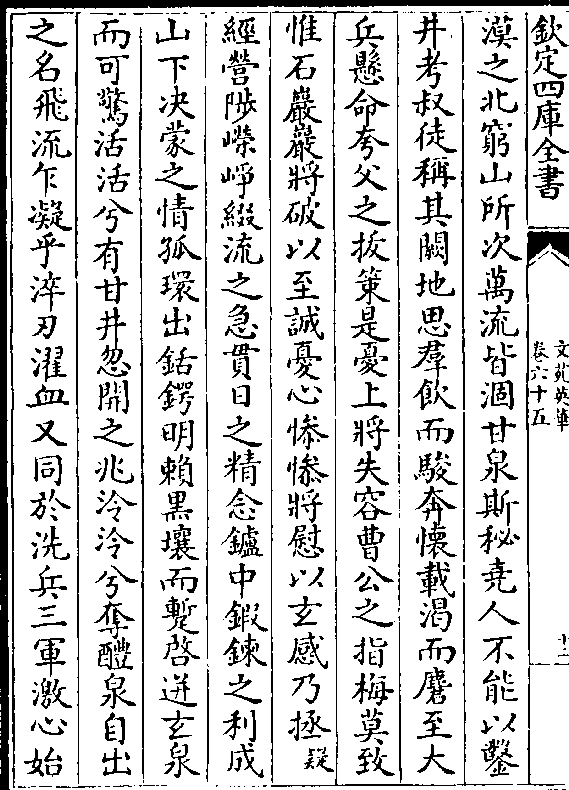 欽定四庫全書
文苑英華
卷六十五
十二
漠之北窮山所次萬流皆涸甘泉斯秘堯人不能以鑿
井考叔徒稱其闕地思羣飲而駿奔懷載渴而麕至大
兵懸命夸父之扳策是憂上將失容曹公之指梅莫致
惟石巖巖將破以至誠憂心慘慘將慰以玄感乃拯疑
經營陟嶸崢綴流之急貫日之精念鑪中鍛鍊之利成
山下决蒙之情孤環出銛鍔明賴黒壤而蹔啓迸玄泉
而可驚活活兮有甘井忽開之兆泠泠兮奪醴泉自出
之名飛流乍凝乎淬刃濯血又同於洗兵三軍激心始